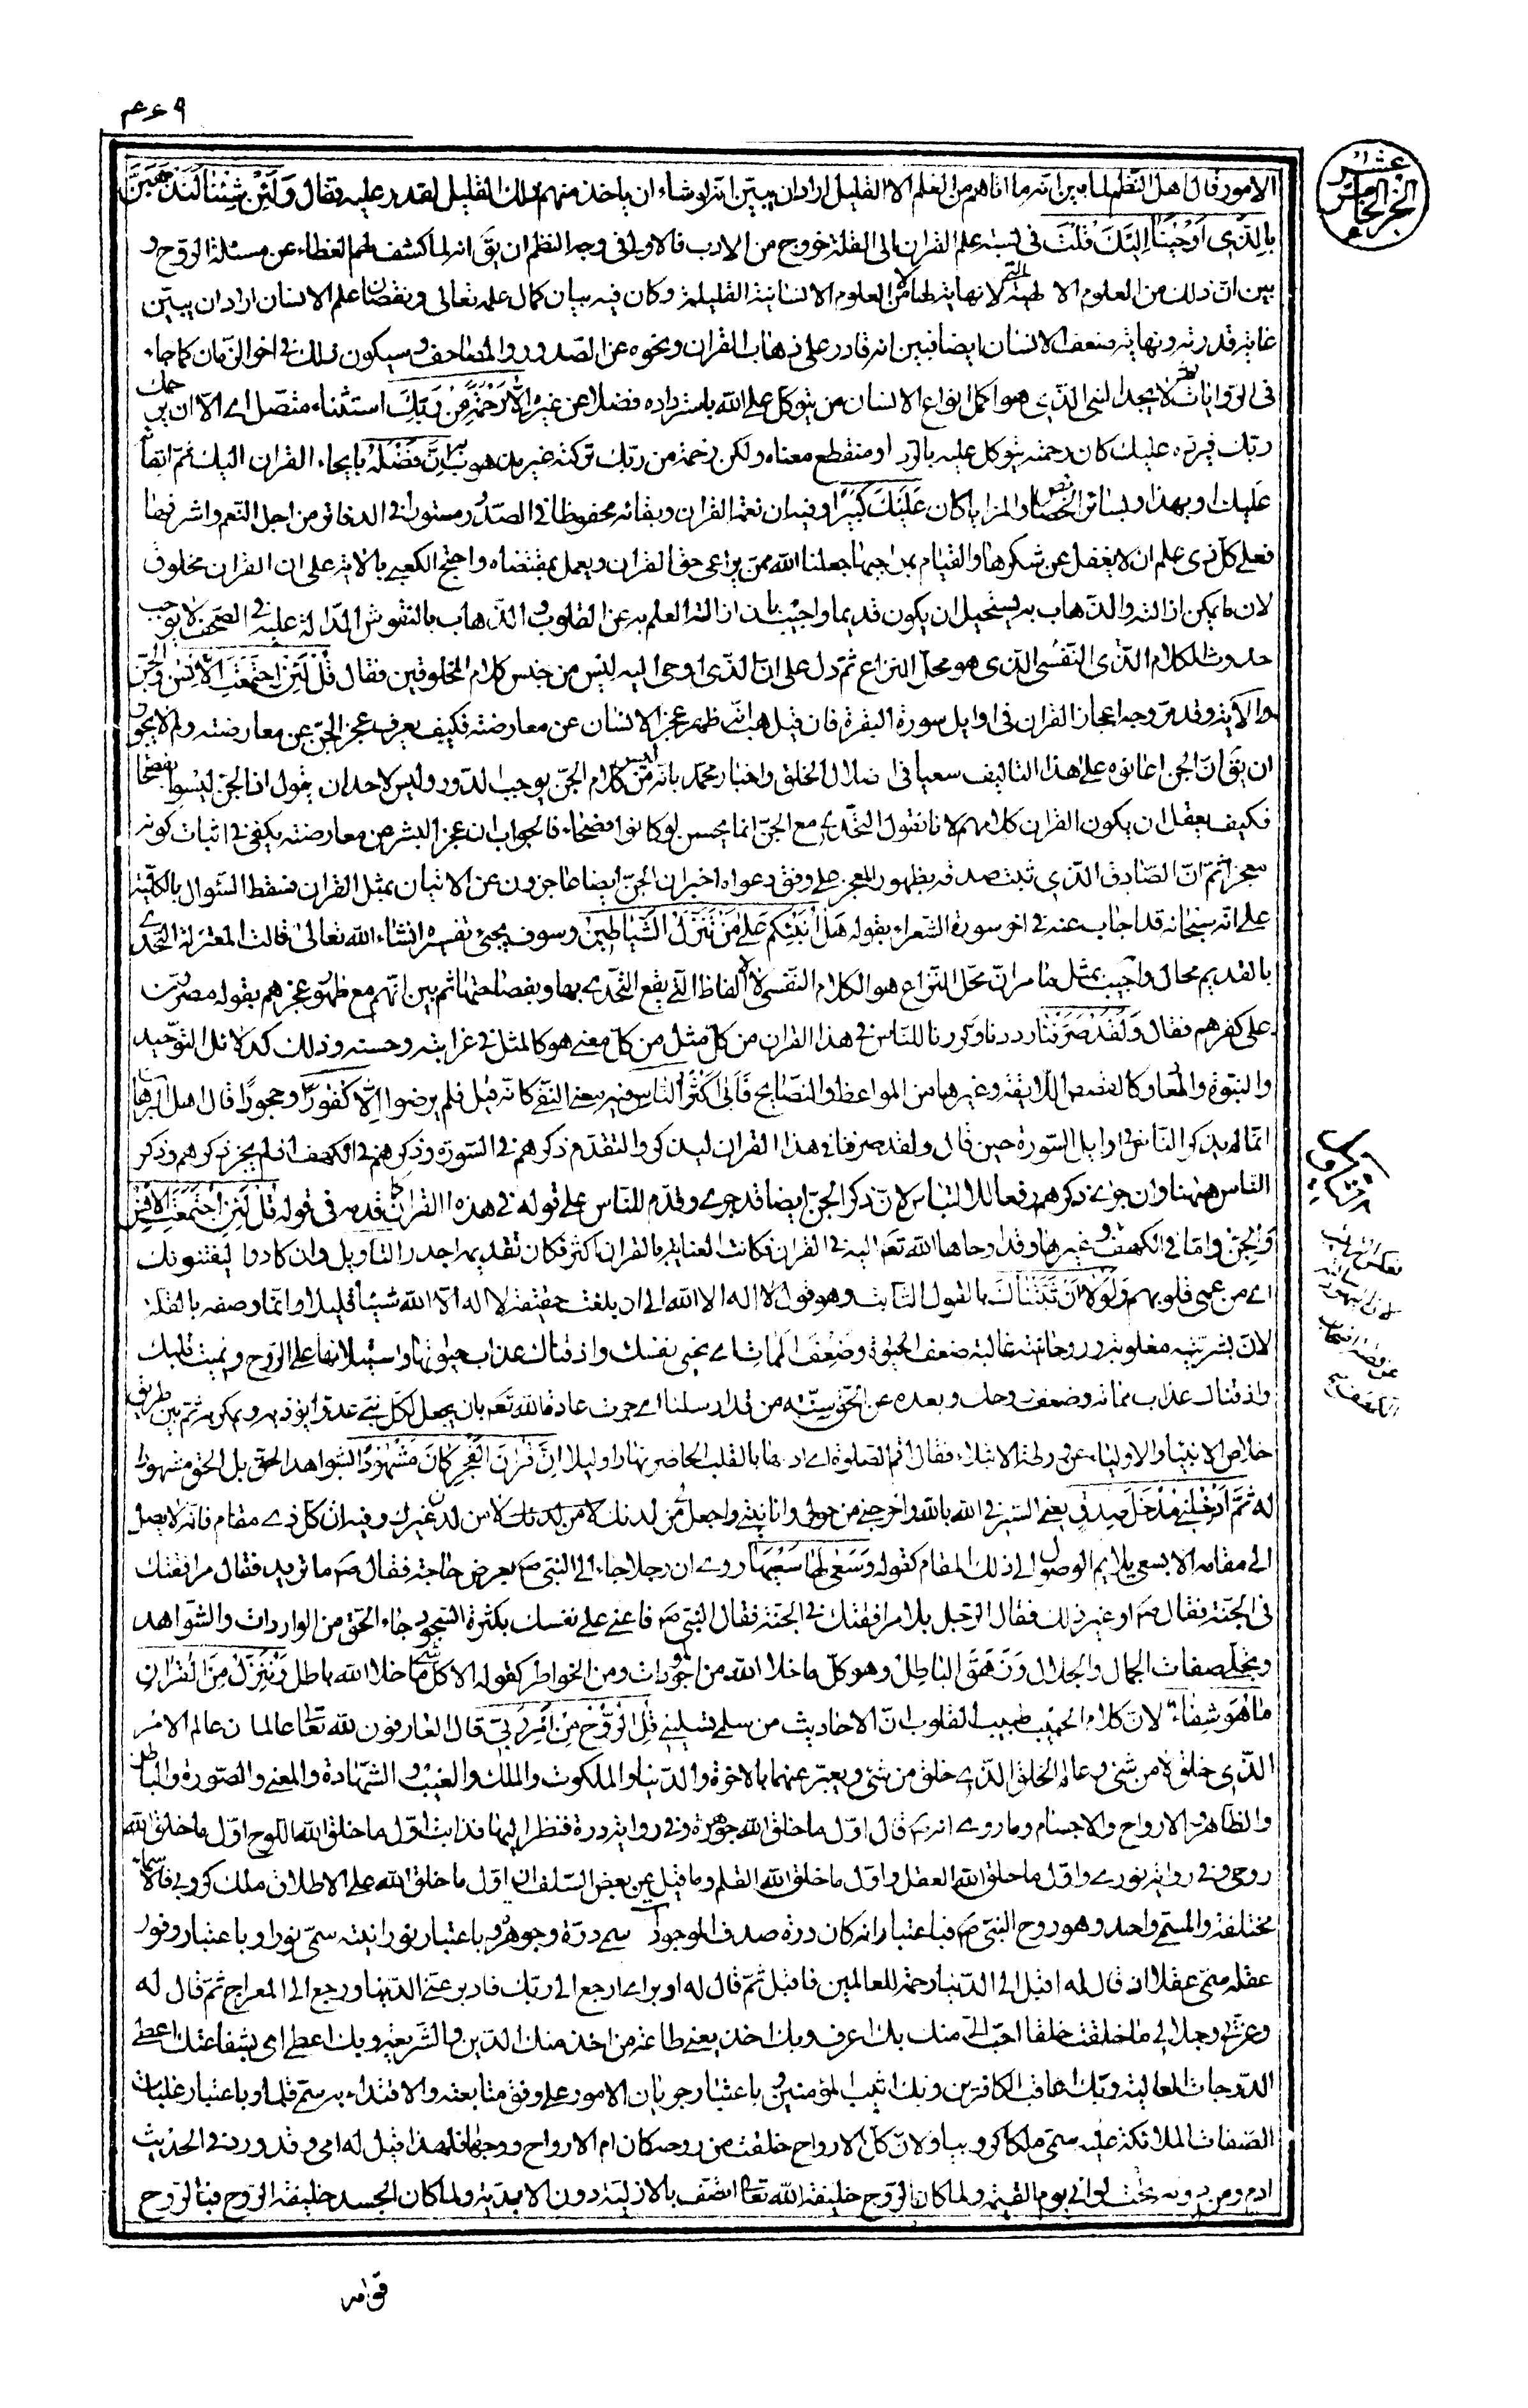 عشر
الجزء الخامس
الامور قال اهل النظم لما بين انه ما اتاهم من العلم الا القليل اراد ان يبين انه لو شاء ان ياخذ منهم ذلك القليل لقدر عليه فقال وَلَئِنْ شِئْنَا لَنَذْهَبَنَّ
بِالَّذِي أَوْحَيْنَا إِلَيْكَ قلت في نسبة علم القران الى القلة خروج من الادب فالاولى في وجه النظم ان يق انه لما كشف لهم الغطاء عن مسئلة الروح و
بين ان ذلك من العلوم الالهية التي لا نهاية لها لا من العلوم الانسانية القليلة وكان فيه بيان كمال علمه تعالى ونقصان علم الانسان اراد ان يبين
غاية قدرته ونهاية ضعف الانسان ايضا فبين انه قادر على ذهاب القران ونحوه عن الصدور والمصاحف وسيكون ذلك في اخر الزمان كما جاء
في الروايات ثم لا يجد النبي الذي هو اكمل انواع الانسان من يتوكل على الله باسترداده فضلا عن غيره إِلَّا رَحْمَةً مِنْ رَبِّكَ استثناء متصل اي الا ان يرحمك
ربك فيرده عليك كان رحمته يتوكل عليه بالرد او منقطع معناه ولكن رحمة من ربك تركته غير مذهوب به إِنَّ فَضْلَهُ بايحاء القران اليك ثم ابقائه
عليك او بهذا وبسائر الخصائص والمزايا كان عَلَيْكَ كَبِيرًا وفيه ان نعمة القران وبقائه محفوظا في الصدور مستورا في الدفاتر من اجل النعم واشرفها
فعلى كل ذي علم ان لا يغفل عن شكرها والقيام بمواجبها جعلنا الله ممن يراعي حق القران ويعمل بمقتضاه واحتج الكعبي بالاية على ان القران مخلوق
لان ما يمكن ازالته والذهاب به يستحيل ان يكون قديما واجيب بان ازالة العلم به عن القلوب والذهاب بالنقوش الدالة عليه في الصحف لا يوجب
حدوث الكلام الذي النفسي الذي هو محل النزاع ثم دل على ان الذي اوحى اليه ليس من جنس كلام المخلوقين فقال قُلْ لَئِنِ اجْتَمَعَتِ الْإِنْسُ وَالْجِنُّ
الاية وقد مر وجه اعجاز القران في اوايل سورة البقرة فان قيل هب انه ظهر عجز الانسان عن معارضته فكيف يعرف عجز الجن عن معارضته ولم لا يجوز
ان يق ان الجن اعانوه على هذا التاليف سعيا في اضلال الخلق واخبار محمد بانه ليس من كلام الجن يوجب الدور وليس لاحد ان يقول ان الجن ليسوا بفصحا
فكيف يعقل ان يكون القران كلامهم لانا نقول التحدي مع الجن انما يحسن لو كانوا فصحاء فالجواب ان عجز البشر عن معارضته يكفي في اثبات كونه
معجزا ثم ان الصادق الذي ثبت صدقه بظهور المعجز على وفق دعواه اخبر ان الجن ايضا عاجزون عن الاتيان بمثل القران فسقط السؤال بالكلية
على انه سبحانه قد اجاب عنه في اخر سورة الشعراء بقوله هَلْ أُنَبِّئُكُمْ عَلَى مَنْ تَنَزَّلُ الشَّيَاطِينُ وسوف يجيئ تفسيره انشاء الله تعالى قالت المعتزلة التحدي
بالقديم محال واجيب بمثل ما مر ان محل النزاع هو الكلام النفسي لا الالفاظ التي يقع التحدي بها وبفصاحتها ثم بين انهم مع ظهور عجزهم بقوله مصرون
على كفرهم فقال وَلَقَدْ صَرَّفْنَا رددنا وكررنا للناس في هذا القران من كل مثل من كل معنى هو كالمثل في غرابته وحسنه وذلك كدلائل التوحيد
والنبوة والمعاد وكالقصص اللايقة وغيرها من المواعظ والنصايح فَأَبَى أَكْثَرُ النَّاسِ فيه معنى النفي كانه قيل فلم يرضوا إِلَّا كُفُورًا وجحودا قال اهل البرهان
انما لم يذكر الناس في اوايل السورة حين قال ولقد صرفنا في هذا القران ليذكروا لتقدم ذكرهم في السورة وذكرهم في الكهف اذ لم يجر ذكرهم وذكر
الناس ههنا وان جرى ذكرهم رفعا للالتباس لان ذكر الجن ايضا قد جرى وقدم للناس على قوله في هذا القران كما قدمه في قوله قُلْ لَئِنِ اجْتَمَعَتِ الْإِنْسُ
وَالْجِنُّ واما في الكهف وغيرها وقد اوحاها الله تعم اليه في القران فكانت العناية بالقران اكثر فكان تقديمه اجدر التاويل وان كادوا ليفتنونك
اي من عمى قلوبهم وَلَوْلَا أَنْ ثَبَّتْنَاكَ بالقول الثابت وهو قول لا اله الا الله الى ان بلغت حقيقة لا اله الا الله شيئا قليلا وانما وصفه بالقلة
لان بشريته مغلوبة وروحانيته غالبة ضعف الحيوة وَضِعْفَ الْمَمَاتِ اي نحيي نفسك واذقناك عذاب حيوتها واستيلائها على الروح ونميت قلبك
واذقناك عذاب مماته وضعف روحك وبعده عن الحق سنة من قد ارسلنا اي جرت عادة الله تعم بان يجعل لكل نبي عدوا يوذيه ويمكر به ثم بين طريق
خلاص الانبياء والاولياء عن ورطة الابتلاء فقال اقم الصلوة اي ادمها بالقلب الحاضر نهارا وليلا إِنَّ قُرْآنَ الْفَجْرِ كَانَ مَشْهُودًا لشواهد الحق بل الحق مشهودا
له ثم أَدْخِلْنِي مُدْخَلَ صِدْقٍ يعني السير في الله بالله واخرجني من حولي وانانيتي واجعل لي من لدنك لا من لدن غيرك وفيه ان كل ذي مقام فانه لا يصل
الى مقامه الا بسعي يلايم الوصول الى ذلك المقام كقوله وَسَعَى لَهَا سَعْيَهَا روي ان رجلا جاء الى النبي ص يعرض حاجته فقال ص ما تريد فقال مرافقتك
في الجنة فقال ص او غير ذلك فقال الرجل بلا مرافقتك في الجنة فقال النبي ص فاعني على نفسك بكثرة السجود جاء الحق من الواردات والشواهد
وتجلي صفات الجمال والجلال وَزَهَقَ الْبَاطِلُ وهو كل ما خلا الله من الموجودات ومن الخواطر كقوله الا كل شئ ما خلا الله باطل وَنُنَزِّلُ مِنَ الْقُرْآنِ
مَا هُوَ شِفَاءٌ لان كلام الحبيب طبيب القلوب ان الاحاديث من سلمى تسليني قُلِ الرُّوحُ مِنْ أَمْرِ رَبِّي قال العارفون لله تعا عالمان عالم الامر
الذي خلق لا من شئ وعالم الخلق الذي خلق من شئ ويعبر عنهما بالاخرة والدنيا والملكوت والملك والغيب والشهادة والمعنى والصورة والباطن
والظاهر والارواح والاجسام وما روي انه ع قال اول ما خلق الله جوهرة وفي رواية درة فنظر اليها فذابت اول ما خلق الله اللوح اول ما خلق الله
روحي وفي رواية نوري واول ما خلق الله العقل واول ما خلق الله القلم وما قيل عن بعض السلف ان اول ما خلق الله على الاطلاق ملك كروبي فالاسماء
مختلفة والمسمى واحد وهو روح النبي ص فباعتبار انه كان درة صدف الموجودات سمي درة وجوهرة وباعتبار نورانيته سمي نورا وباعتبار وفور
عقله سمي عقلا اذ قال له اقبل الى الدنيا رحمة للعالمين فاقبل ثم قال له ادبر اي ارجع الى ربك فادبر عن الدنيا ورجع الى المعراج ثم قال له
وعزتي وجلالي ما خلقت خلقا احب الي منك بك اعرف وبك اخذ يعني طاعة من اخذ منك الدين والشريعة وبك اعطي اي بشفاعتك اعطي
الدرجات العالية وبك اعاقب الكافرين وبك اثيب المؤمنين وباعتبار جريان الامور على وفق متابعته والاقتداء به سمي قلما وباعتبار غلبات
الصفات الملائكة عليه سمي ملكا كروبيا ولان كل الارواح خلقت من روحه كان ام الارواح وروحها فلهذا قيل له امي وقد ورد في الحديث
ادم ومن دونه تحت لوائي يوم القيمة ولما كان الروح خليفة الله تعا اتصف بالازلية دون الابدية ولما كان الجسد خليفة الروح فبالروح